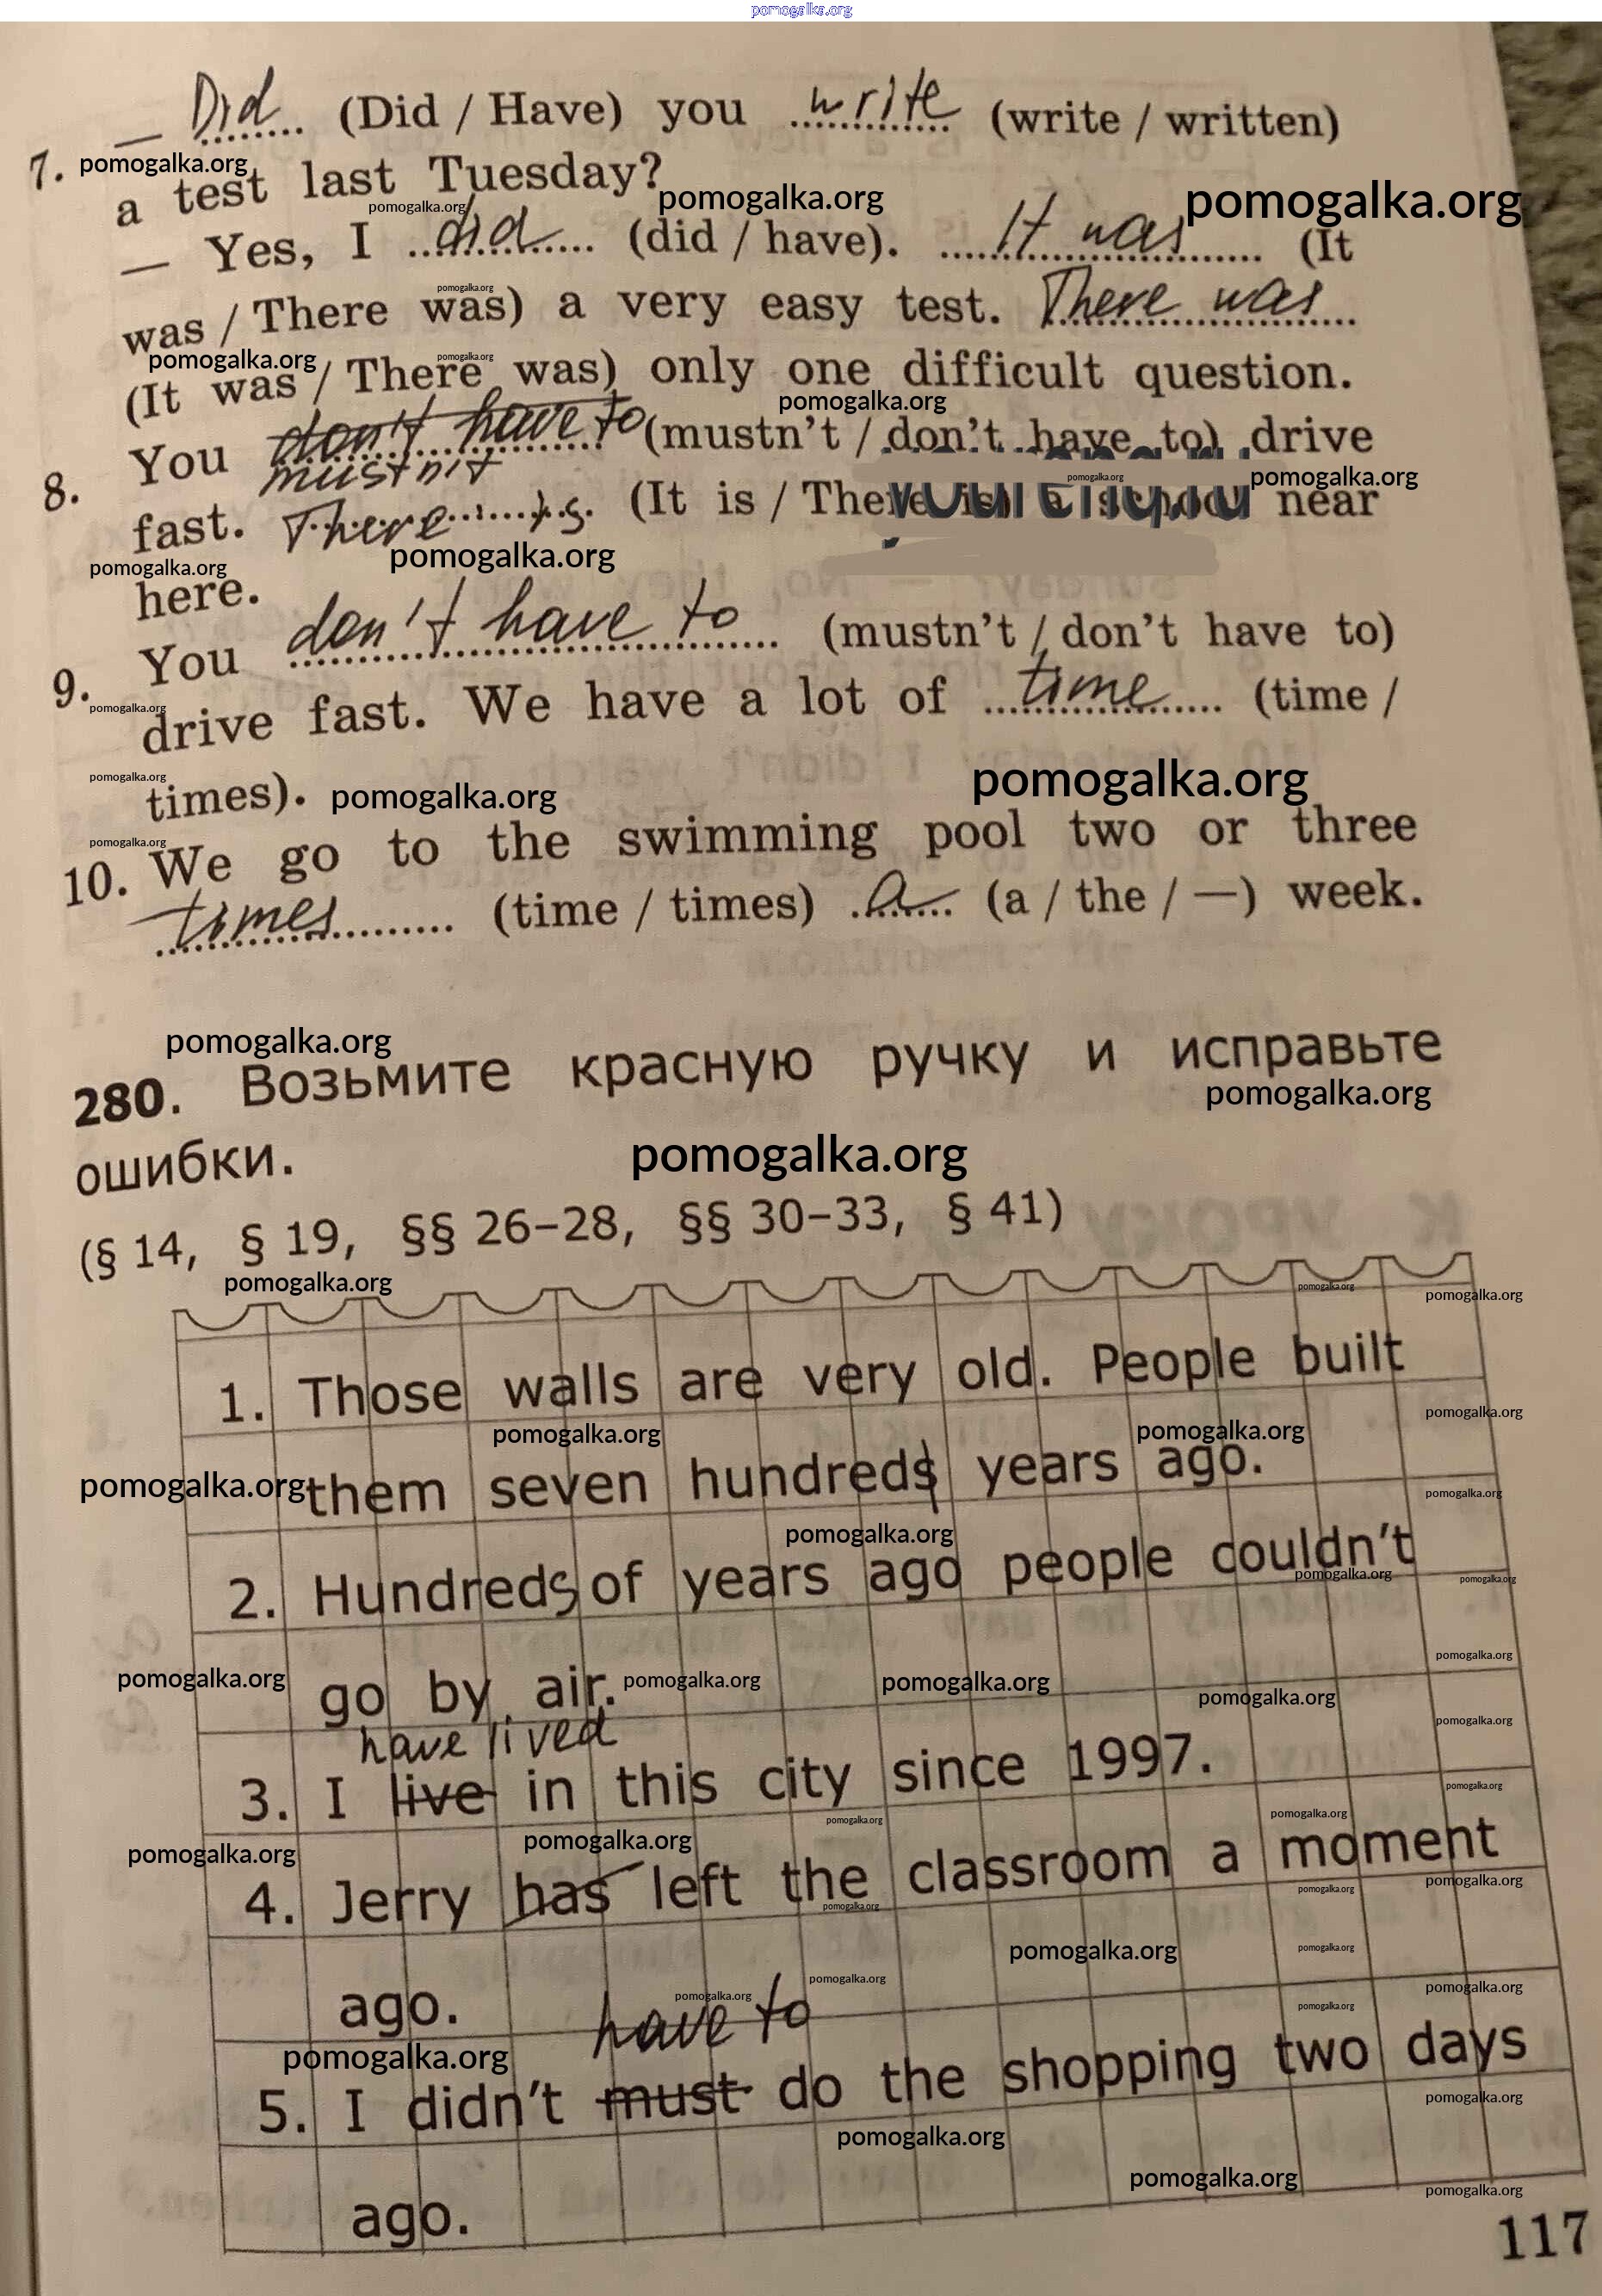 pomogalka.org
— Did (Did / Have) you write (write / written)
7. pomogalka.org
a test last Tuesday?
pomogalka.org pomogalka.org pomogalka.org
— Yes, I did (did / have). It was (It
pomogalka.org
was / There was) a very easy test. There was
pomogalka.org pomogalka.org
(It was / There was) only one difficult question.
pomogalka.org
8. You don't have to (mustn't / don't have to) drive
mustn't
pomogalka.org pomogalka.org
fast. There is (It is / There is) a school near
pomogalka.org pomogalka.org
here.
9. You don't have to (mustn't / don't have to)
pomogalka.org
drive fast. We have a lot of time (time /
pomogalka.org pomogalka.org
times). pomogalka.org
pomogalka.org
10. We go to the swimming pool two or three
times (time / times) a (a / the / —) week.
pomogalka.org
280. Возьмите красную ручку и исправьте
pomogalka.org
ошибки.
pomogalka.org
(§ 14, § 19, §§ 26–28, §§ 30–33, § 41)
pomogalka.org pomogalka.org pomogalka.org
1. Those walls are very old. People built
pomogalka.org pomogalka.org pomogalka.org
pomogalka.org them seven hundreds years ago.
pomogalka.org pomogalka.org
2. Hundreds of years ago people couldn't
pomogalka.org pomogalka.org
pomogalka.org go by air. pomogalka.org pomogalka.org pomogalka.org pomogalka.org
have lived pomogalka.org
3. I live in this city since 1997.
pomogalka.org pomogalka.org pomogalka.org
pomogalka.org pomogalka.org
4. Jerry has left the classroom a moment
pomogalka.org pomogalka.org pomogalka.org
pomogalka.org pomogalka.org
ago.
pomogalka.org pomogalka.org pomogalka.org pomogalka.org
have to
pomogalka.org
5. I didn't must do the shopping two days
pomogalka.org pomogalka.org
pomogalka.org pomogalka.org
ago.
117